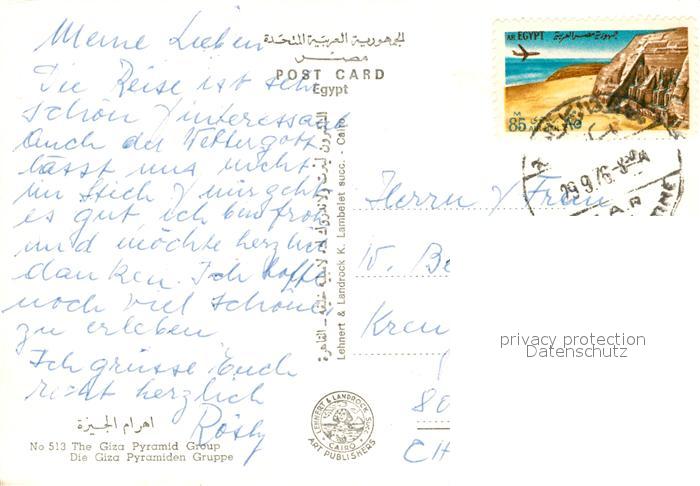 Meine Lieben
Die Reise ist sehr
schön & interessant
Auch der Wettergott
lässt uns nicht
im Stich & mir geht
es gut ich bin froh
und möchte herzlich
danken. Ich hoffe
noch viel Schönes
zu erleben
Ich grüsse Euch
recht herzlich
Rösly
اهرام الجيزة
No 513 The Giza Pyramid Group
Die Giza Pyramiden Gruppe
الجمهورية العربية المتحدة
مصر
POST CARD
Egypt
Lehnert & Landrock K. Lambelet succ. - Cairo
LEHNERT & LANDROCK SUCC.
CAIRO
ART PUBLISHERS
AR EGYPT جمهورية مصر العربية
M 85
AIR MAIL
29.9.76
Herrn & Frau
W. Be
Kreu
80
CH
privacy protection
Datenschutz